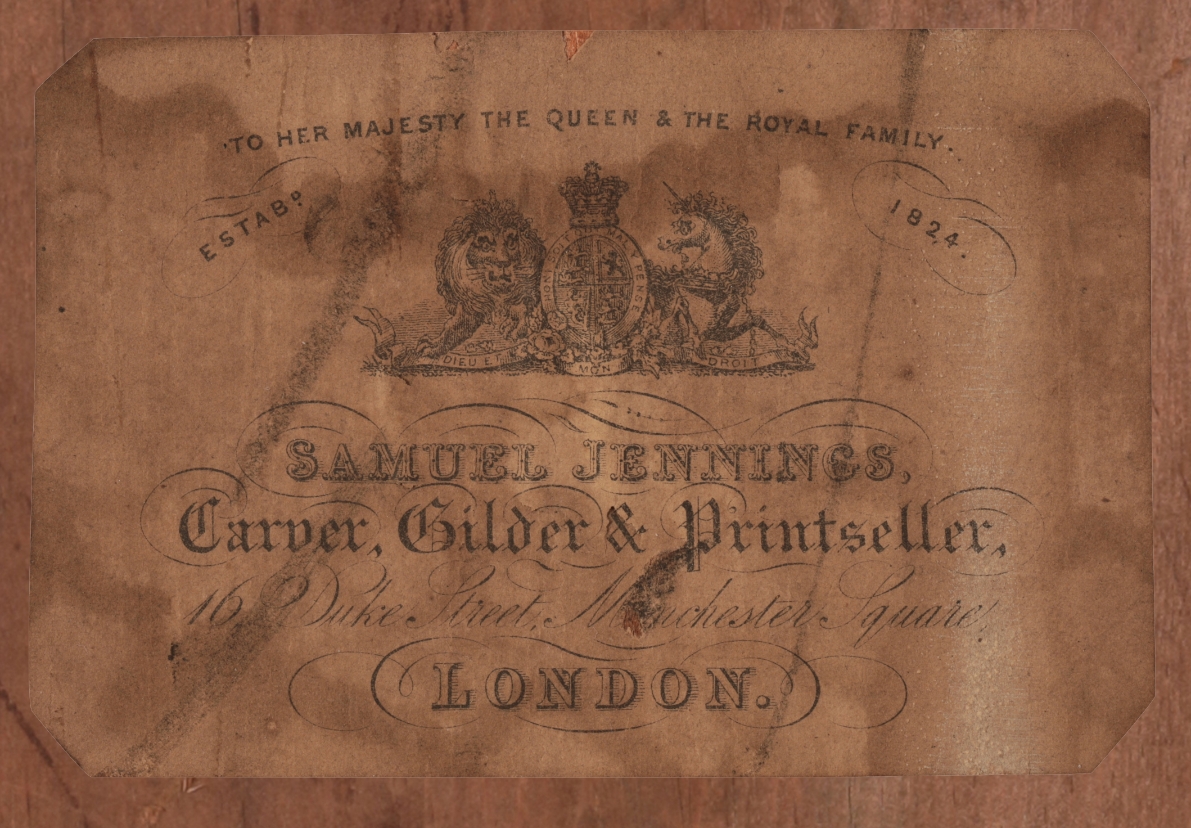 TO HER MAJESTY THE QUEEN & THE ROYAL FAMILY.
ESTABD 1824.
DIEU ET MON DROIT
SAMUEL JENNINGS,
Carver, Gilder & Printseller,
16 Duke Street, Manchester Square,
LONDON.